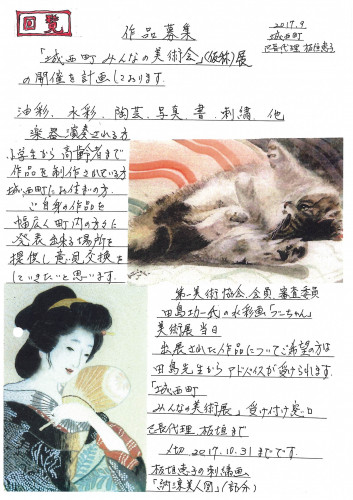 回覧
作品募集
2017.9
城西町
区長代理 板垣恵子
「城西町 みんなの美術会」(仮称)展
の開催を計画しております。
油彩、水彩、陶芸、写真、書、刺繍、他
楽器演奏される方
小学生から高齢者まで
作品を制作されている方
城西町にお住まいの方、
ご自身の作品を
幅広く町内の方々に
発表出来る場所を
提供し意見交換を
していきたいと思います。
第一美術協会会員 審査委員
田島功一氏の水彩画「うこちゃん」
美術展当日
出展された作品についてご希望の方は
田島先生からアドバイスが受けられます。
「城西町
みんなの美術展」受け付け窓口
区長代理、板垣まで
〆切 2017.10.31までです。
板垣恵子の刺繍画
「納涼美人図」(部分)